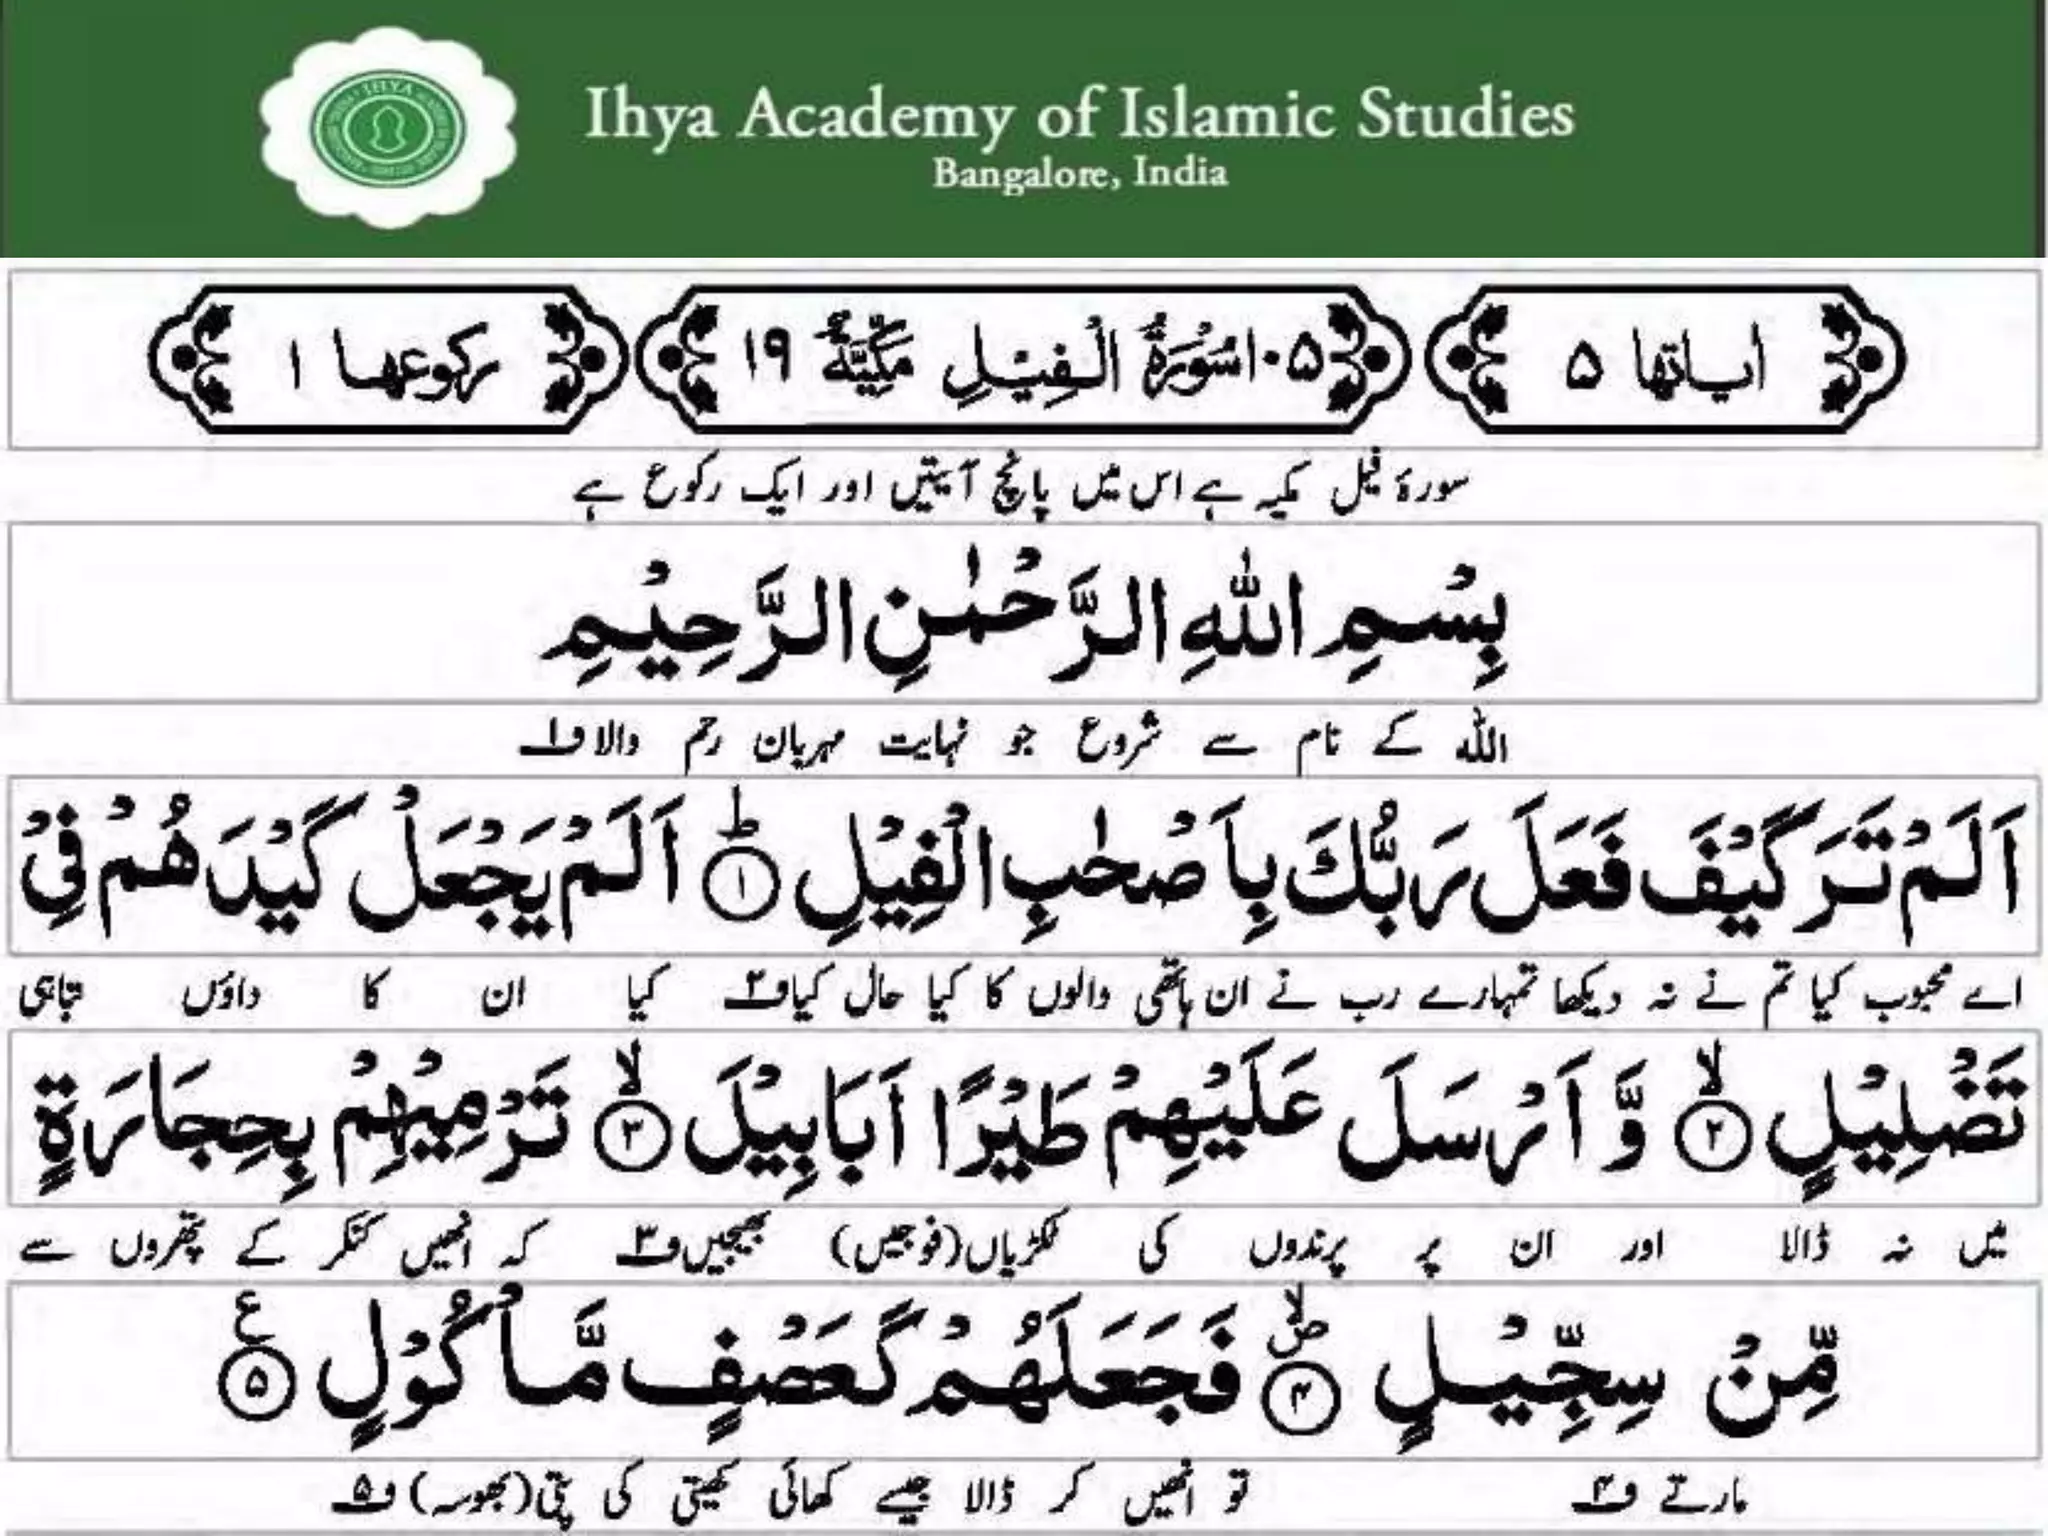 Ihya Academy of Islamic Studies
Bangalore, India
اٰیاتها ۵ ۱۰۵ سُوْرَةُ الْفِيْلِ مَكِّيَّةٌ ۱۹ رکوعها ۱
سورۂ فیل مکیہ ہے اس میں پانچ آیتیں اور ایک رکوع ہے
بِسْمِ اللّٰهِ الرَّحْمٰنِ الرَّحِيْمِ
اللہ کے نام سے شروع جو نہایت مہربان رحم والا ف۱
اَلَمْ تَرَ كَيْفَ فَعَلَ رَبُّكَ بِاَصْحٰبِ الْفِيْلِ ؕ ۝۱ اَلَمْ يَجْعَلْ كَيْدَهُمْ فِيْ
اے محبوب کیا تم نے نہ دیکھا تمہارے رب نے ان ہاتھی والوں کا کیا حال کیا ف۲ کیا ان کا داؤں تباہی
تَضْلِيْلٍ ۙ ۝۲ وَّ اَرْسَلَ عَلَيْهِمْ طَيْرًا اَبَابِيْلَ ۙ ۝۳ تَرْمِيْهِمْ بِحِجَارَةٍ
میں نہ ڈالا اور ان پر پرندوں کی ٹکڑیاں (فوجیں) بھیجیں ف۳ کہ انھیں کنکر کے پتھروں سے
مِّنْ سِجِّيْلٍ ۪ۙ ۝۴ فَجَعَلَهُمْ كَعَصْفٍ مَّاْكُوْلٍ ع ۝۵
مارتے ف۴ تو انھیں کر ڈالا جیسے کھائی کھیتی کی پتی (بھوسہ) ف۵